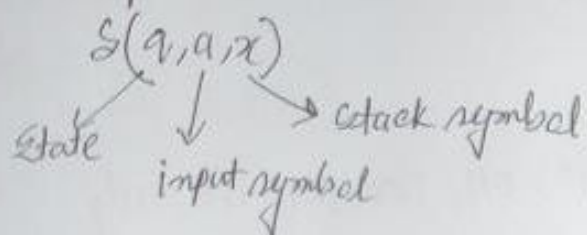 δ(q,a,x)
state
input symbol
stack symbol